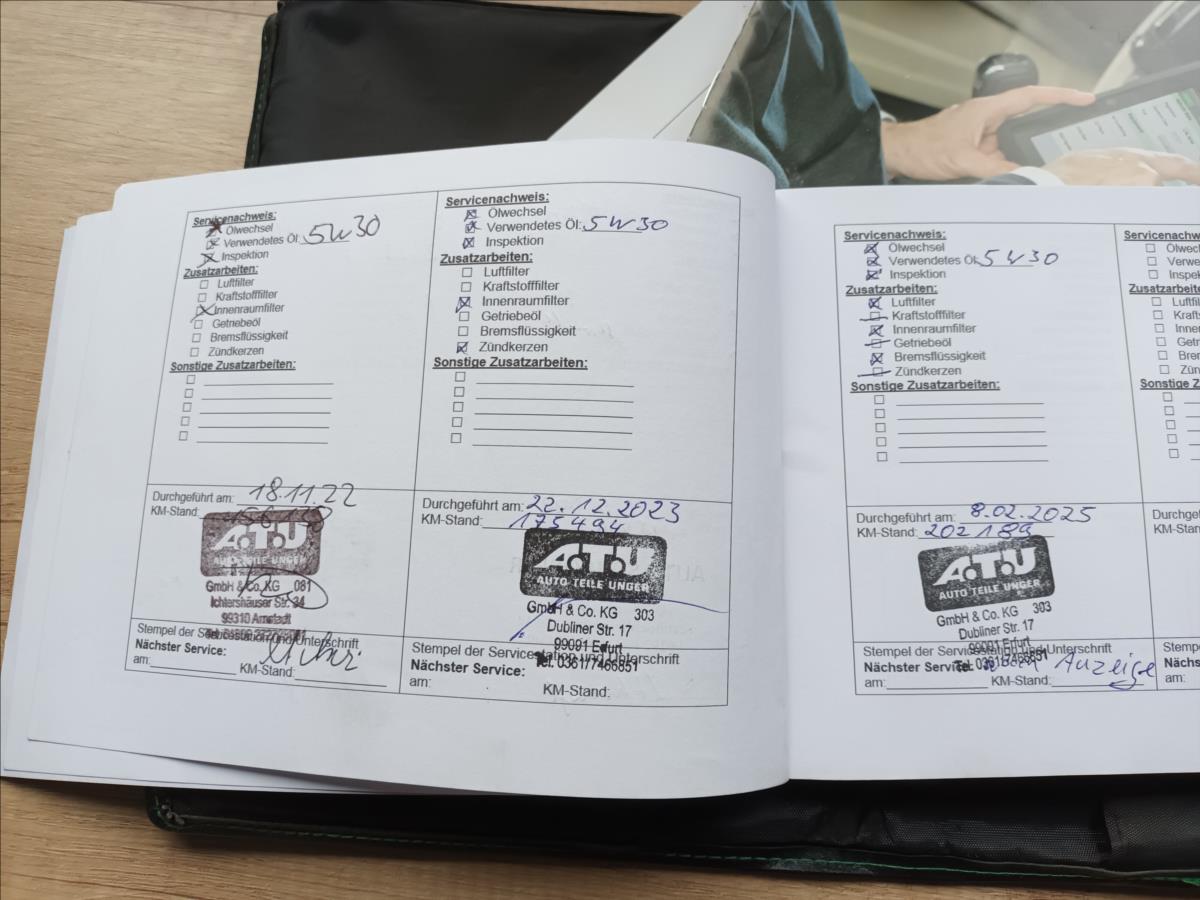 Servicenachweis:
Ölwechsel
Verwendetes Öl: 5W30
Inspektion
Zusatzarbeiten:
Luftfilter
Kraftstofffilter
Innenraumfilter
Getriebeöl
Bremsflüssigkeit
Zündkerzen
Sonstige Zusatzarbeiten:
Durchgeführt am: 18.11.22
KM-Stand:
A.T.U
AUTO TEILE UNGER
GmbH & Co. KG 081
Ichtershäuser Str. 34
99310 Arnstadt
Stempel der Servicestation und Unterschrift
Nächster Service:
am: KM-Stand:
Servicenachweis:
Ölwechsel
Verwendetes Öl: 5W30
Inspektion
Zusatzarbeiten:
Luftfilter
Kraftstofffilter
Innenraumfilter
Getriebeöl
Bremsflüssigkeit
Zündkerzen
Sonstige Zusatzarbeiten:
Durchgeführt am: 22.12.2023
KM-Stand: 175494
A.T.U
AUTO TEILE UNGER
GmbH & Co. KG 303
Dubliner Str. 17
99091 Erfurt
Stempel der Servicestation und Unterschrift
Tel. 0361/7466851
Nächster Service:
am: KM-Stand:
Servicenachweis:
Ölwechsel
Verwendetes Öl: 5W30
Inspektion
Zusatzarbeiten:
Luftfilter
Kraftstofffilter
Innenraumfilter
Getriebeöl
Bremsflüssigkeit
Zündkerzen
Sonstige Zusatzarbeiten:
Durchgeführt am: 8.02.2025
KM-Stand: 202189
A.T.U
AUTO TEILE UNGER
GmbH & Co. KG 303
Dubliner Str. 17
99091 Erfurt
Stempel der Servicestation und Unterschrift
Tel. 0361/7466851
Nächster Service: Anzeige
am: KM-Stand:
Servicenachweis
Ölwech
Verwe
Inspek
Zusatzarbeiten:
Luftfil
Kraft
Innen
Getri
Brem
Zün
Sonstige Zusatz
Durchgef
KM-Stand
Stempel
Nächste
am: